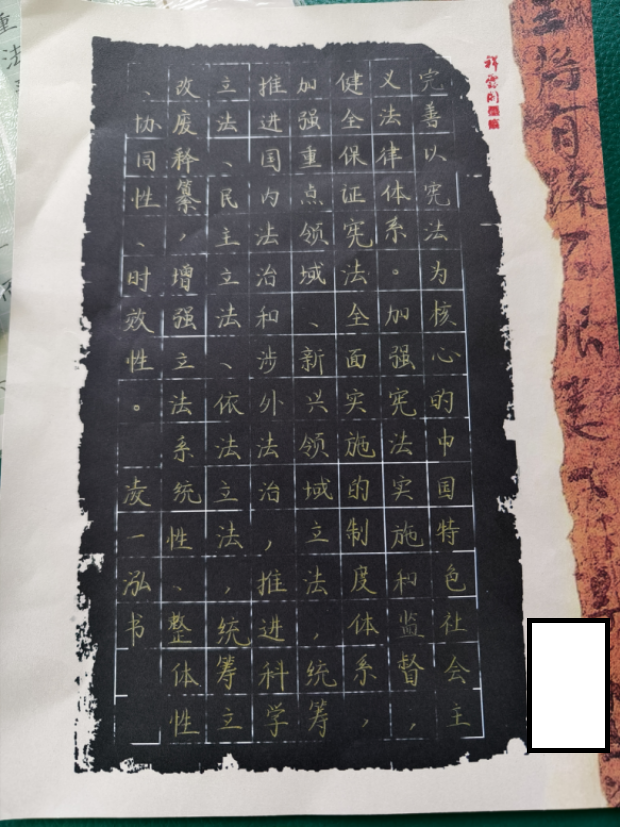 完善以宪法为核心的中国特色社会主
义法律体系。加强宪法实施和监督，
健全保证宪法全面实施的制度体系，
加强重点领域、新兴领域立法，统筹
推进国内法治和涉外法治，推进科学
立法、民主立法、依法立法，统筹立
改废释纂，增强立法系统性、整体性
、协同性、时效性。凌一泓书